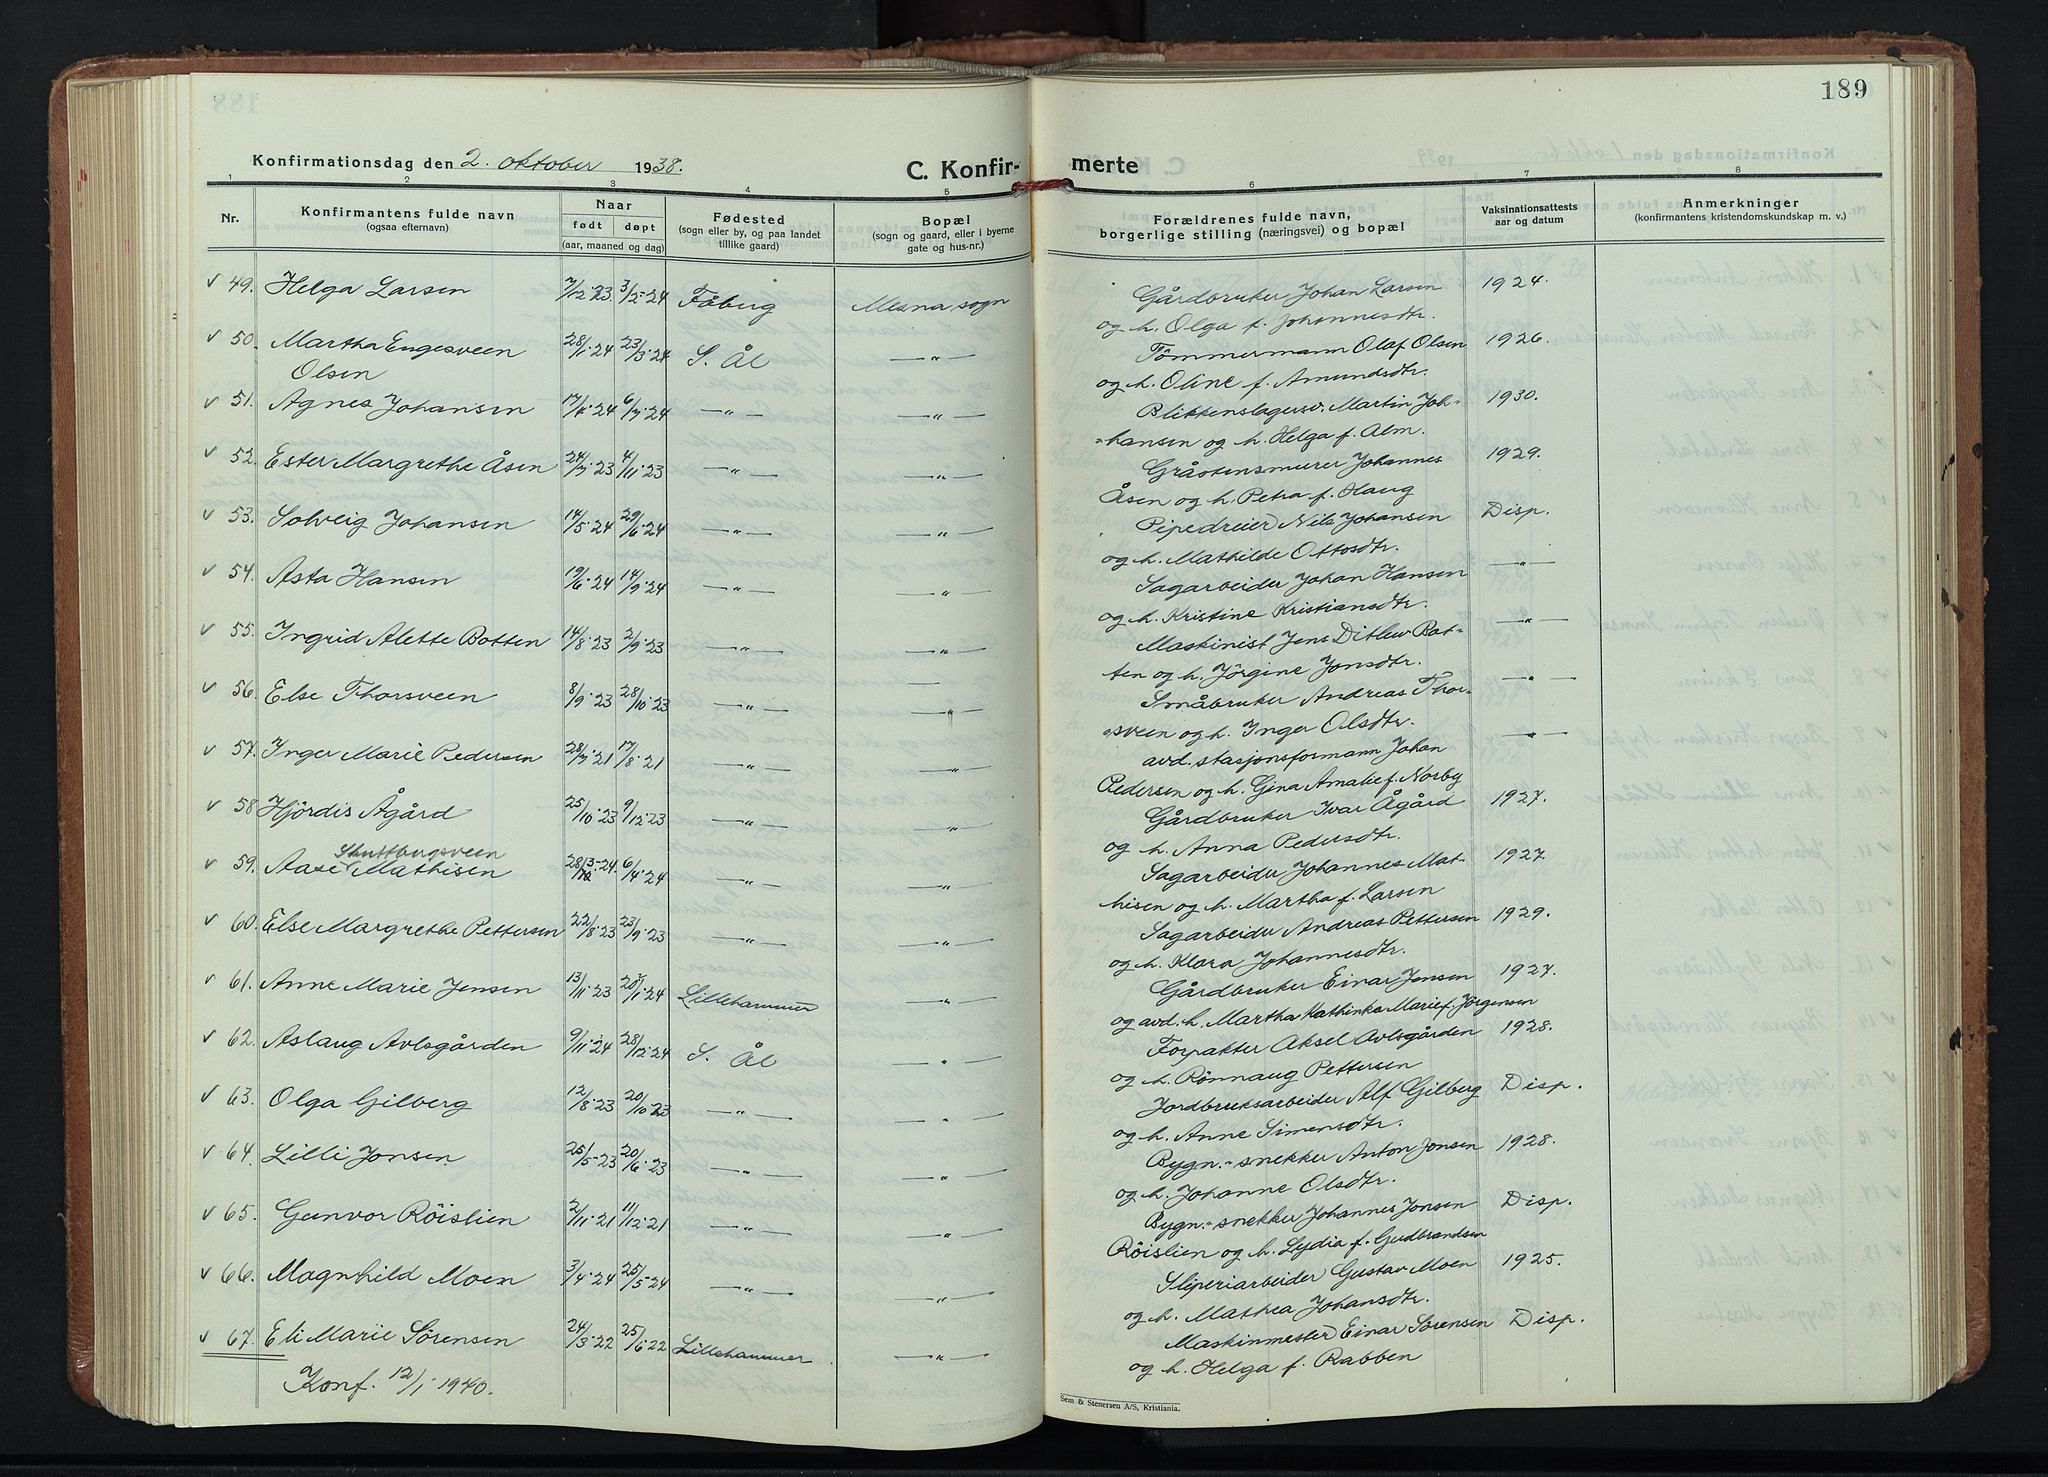 189
Konfirmationsdag den 2. oktober 1938.
C. Konfir-
merte
1 2 3 4 5 6 7 8
Nr.
Konfirmantens fulde navn
(ogsaa efternavn)
Naar
født døpt
(aar, maaned og dag)
Fødested
(sogn eller by, og paa landet
tillike gaard)
Bopæl
(sogn og gaard, eller i byerne
gate og hus-nr.)
Forældrenes fulde navn,
borgerlige stilling (næringsvei) og bopæl
Vaksinationsattests
aar og datum
Anmerkninger
(konfirmantens kristendomskundskap m. v.)
49. Helga Larsen 7/12-23 3/2-24 Fåberg Mesna sogn Gårdbruker Johan Larsen 1924.
og h. Olga f. Johannesdtr.
50. Martha Engesveen 28/1-24 23/3-24 S. Ål —"— Tömmermann Olaf Olsen 1926.
Olsen og h. Oline f. Amundsdtr.
51. Agnes Johansen 6/7-24 —"— —"— Blikkenslagersv. Martin Joh- 1930.
hansen og h. Helga f. Alm.
52. Ester Margrethe Åsen 24/7-23 4/11-23 —"— —"— Gråstensmurer Johannes 1929.
Åsen og h. Petra f. Haug
53. Solveig Johansen 14/5-24 29/6-24 —"— —"— Pipedreier Nils Johansen Disp.
og h. Mathilde Ottosdtr.
54. Asta Hansen 19/6-24 14/9-24 —"— —"— Sagarbeider Johan Hansen —"—
og h. Kristine Kristiansdtr.
55. Ingrid Alette Botten 14/8-23 2/9-23 —"— —"— Maskinist Jens Ditlew Bot- —"—
ten og h. Jörgine Jonsdtr.
56. Else Thorsveen 8/9-23 28/10-23 —"— —"— Småbruker Andreas Thor- —"—
sveen og h. Inger Olsdtr.
57. Inger Marie Pedersen 28/7-21 17/8-21 —"— —"— avd. stasjonsformann Johan —"—
Pedersen og h. Gina Amalie f. Norby
58 Hjördis Ågård 25/10-23 9/12-23 —"— —"— Gårdbruker Ivar Ågård 1927.
og h. Anna Pedersdtr.
59. Aase Mathisen 6/4-24 —"— —"— Sagarbeider Johannes Mat- 1927.
hisen og h. Martha f. Larsen
60. Else Margrethe Pettersen 22/8-23 23/9-23 —"— —"— Sagarbeider Andreas Pettersen 1929.
og h. Klara Johannesdtr.
61. Anne Marie Jensen 13/11-23 Lillehammer —"— Gårdbruker Einar Jensen 1927.
og avd. h. Martha Kathinka Marie f. Jörgensen
62. Aslaug Avlsgården 9/11-24 28/12-24 S. Ål —"— Forpakter Aksel Avlsgården 1928.
og h. Rönnaug Pettersen
63. Olga Gilberg 12/8-23 20/10-23 —"— —"— Jordbruksarbeider Alf Gilberg Disp.
og h. Anne Simensdtr.
64. Lilli Jonsen 25/5-23 20/6-23 —"— —"— Bygn.-snekker Anton Jonsen 1928.
og h. Johanne Olsdtr.
65. Gunvor Röislien 2/11-21 11/12-21 —"— —"— Bygn.-snekker Johannes Jonsen Disp.
Röislien og h. Lydia f. Gudbrandsen
66. Magnhild Moen 3/4-24 25/5-24 —"— —"— Sliperiarbeider Gustav Moen 1925.
og h. Mathea Johansdtr.
67. Eli Marie Sörensen 24/3-22 25/6-22 Lillehammer —"— Maskinmester Einar Sörensen Disp.
og h. Helga f. Rabben
Konf. 12/1 1940.
Sem & Stenersen A/S, Kristiania.